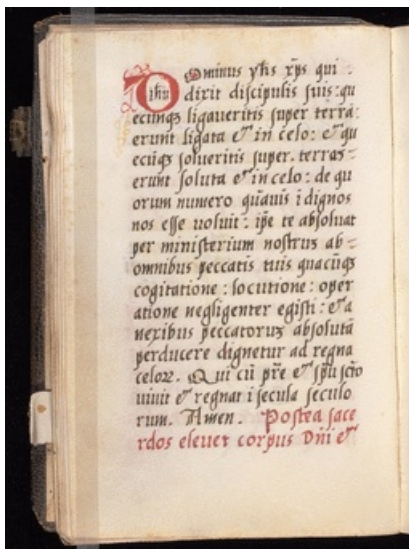 Dominus yhs xps qui
dixit discipulis suis: qu
ecunqz ligaveritis super terra
erunt ligata & in celo: & qu
ecuqz solveritis super. terraz
erunt soluta & in celo: de qu
orum numero quauis i dignos
nos esse uoluit: ipe te absoluat
per ministerium nostruz ab
omnibus peccatis tuis quacuqz
cogitatione: locutione: oper
atione negligenter egisti: & a
nexibus peccatoruz absolutu
perducere dignetur ad regna
celoz. Qui cu pre & spu scto
uiuit & regnat i secula seculo
rum. Amen. Postea sace
rdos elevet corpus Dni &